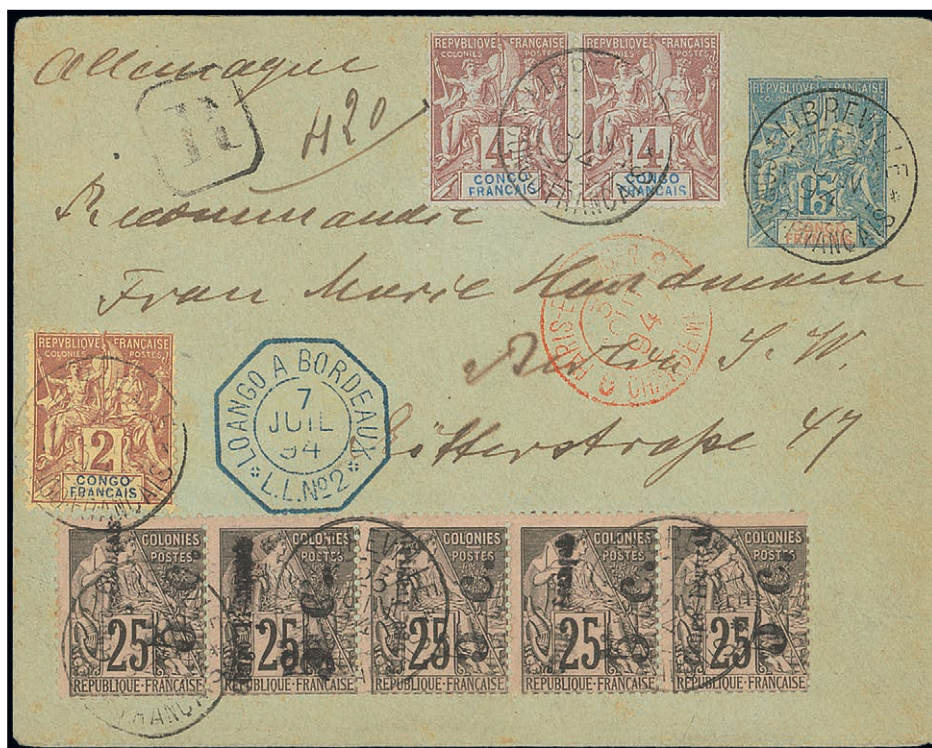 Allemagne
R
420
REPVBLIQUE FRANÇAISE
COLONIES POSTES
4
CONGO
FRANÇAIS
REPVBLIQUE FRANÇAISE
4
CONGO
FRANÇAIS
LIBREVILLE
CONGO FRANÇAIS
15
CONGO
FRANÇAIS
Recommandée
Frau Marie Handmann
Berlin S. W.
Ritterstraße 47
PARIS
94
REPVBLIQUE FRANÇAISE
COLONIES POSTES
2
CONGO
FRANÇAIS
LOANGO A BORDEAUX
7
JUIL
94
L.L.Nº2
COLONIES
POSTES
25
REPUBLIQUE-FRANÇAISE
COLONIES
POSTES
25
REPUBLIQUE-FRANÇAISE
COLONIES
POSTES
25
REPUBLIQUE-FRANÇAISE
COLONIES
POSTES
25
REPUBLIQUE-FRANÇAISE
COLONIES
POSTES
25
REPUBLIQUE-FRANÇAISE